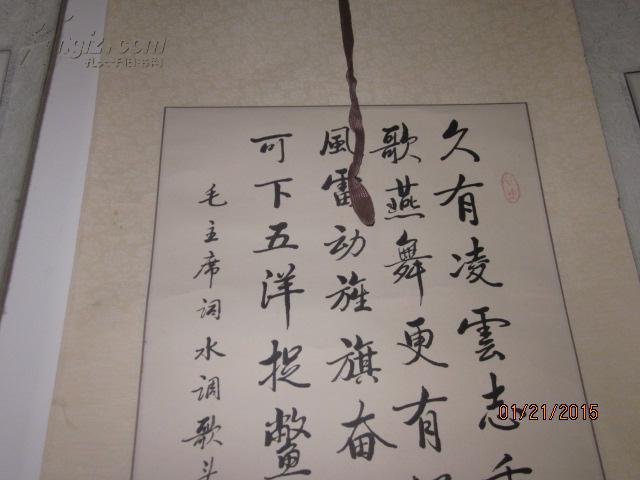 久有凌雲志
歌燕舞更有
風雷动旌旗奋
可下五洋捉鳖
毛主席词水调歌头
孔夫子旧书网
01/21/2015